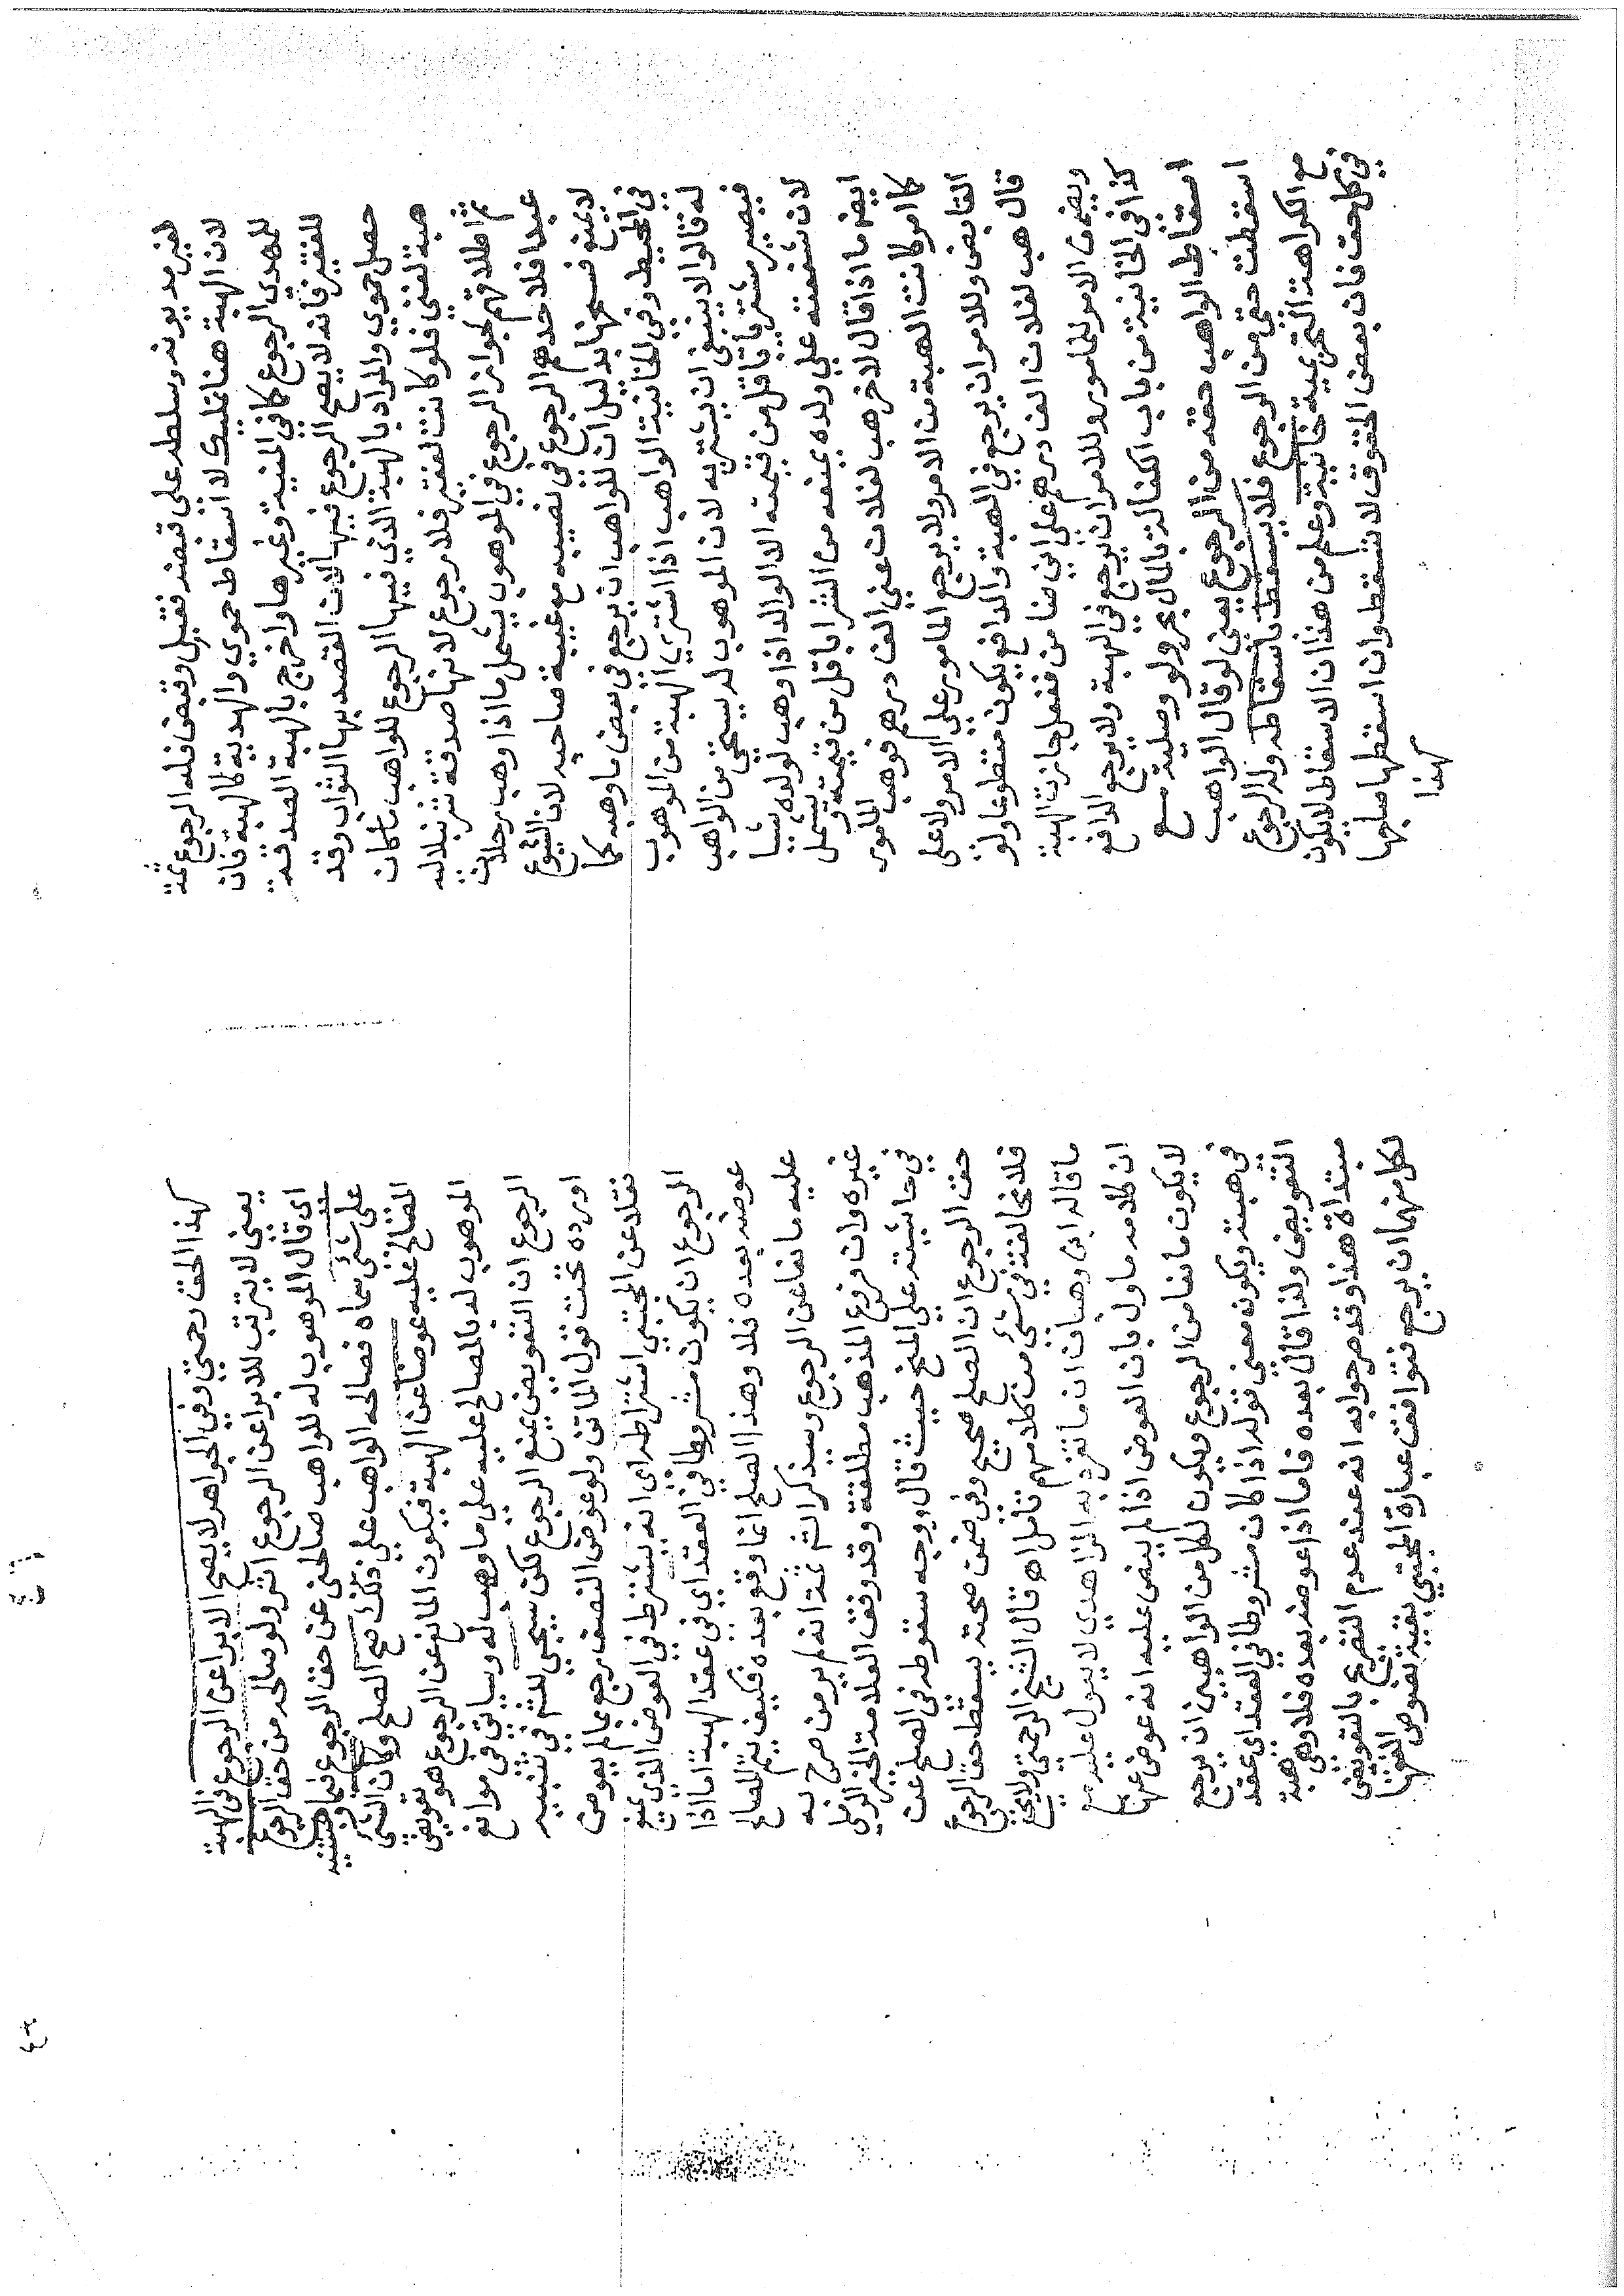 لغير مديونه وسلطه على قبضه فقبل وقبض فله الرجوع ثمة
لان الهبة هنا تمليك لا اسقاط حموي والهدية كالهبة فان
للمهدي الرجوع كما في المنية وغيرها واخرج بالهبة الصدقة
للفقير فانه لا يصح الرجوع فيها لان القصد بها الثواب وقد
حصل حموي والمراد بالهبة الذي فيها الرجوع للواهب ما كان
هبة لغني فلو كانت لفقير فلا رجوع لانها صدقة شرنبلاليه
ثم اطلاقهم لجواز الرجوع في الموهوب يشمل ما اذا وهب رجلان
عبدا فلاحدهم الرجوع في نصيبه مع غيبة صاحبه لان الشيوع
لا يمنع فسخها بدليل ان للواهب ان يرجع في بعض ما وهبه كما
في المحيط وفي الخانية الواهب اذا اشترى الهبة من الموهوب
له قالوا لا ينبغي ان يشتريه لان الموهوب له يستحي من الواهب
فيصير مشتريا باقل من قيمته الا الوالد اذا وهب لولده شيا
لان شفقته على ولده يمنعه من الشرا باقل من قيمته ويشمل
ايضا ما اذا قال لاخر هب لفلان عني الف درهم فوهب المامور
كما امر كانت الهبة من الامر ولا يرجع المامور على الامر ولا على
القابض وللامر ان يرجع في الهبة والدافع يكون متطوعا ولو
قال هب لفلان الف درهم على اني ضامن ففعل جازت الهبة
ويضمن الامر للمامور وللامر ان يرجع في الهبة ولا يرجع الدافع
كذا في الخانية من باب الكفالة بالمال بحر ولو وصلية مع
اسقاط الواهب حقه من الرجوع يعني لو قال الواهب
اسقطت حقي من الرجوع فلا يسقط باسقاطه وله الرجوع
مع الكراهة التحريمية خانية وعلم من هذا ان الاسقاط لا يكون
في كل حق فان بعض الحقوق لا تسقط وان اسقطها صاحبها
كهذا
كهذا الحق رحمتي وفي الجواهر لا يصح الابراء عن الرجوع في الهبة
يعني لا يترتب للابرا عن الرجوع اثر ولو صالحه من حق الرجوع
اي قال الموهوب له للواهب صالحني عن حق الرجوع لما وهبته
على شئ سماه فصالحه الواهب على ذلك صح الصلح وكان الشئ
المصالح عليه عوضا عن الهبة فيكون المانع عن الرجوع هو تعويض
الموهوب له بالمصالح عليه على ما وهب له وسياتي في موانع
الرجوع ان التعويض يمنع الرجوع لكن سيجيي للشم في تنبيه
اورده تحت قول الماتن ولو عوض النصف رجع بما لم يعوض
نقلا عن المجتبى اشتراطه اي انه يشترط في العوض الذي يمنع
الرجوع ان يكون مشروطا في العقد اي في عقد الهبة اما اذا
عوضه بعده فلا وهذا الصلح انما وقع بعده فكيف يتم المصالح
عليه مانعا عن الرجوع وسيذكر الشم ثمة انه لم ير من صرح به
غيره وان فروع المذهب مطلقة وقد وفق العلامة الخير الرملي
في حاشيته على المنح حيث قال ووجه سقوطه في الصلح عن
حق الرجوع ان الصلح صحيح وفي ضمن صحته يسقط حق الرجوع
فلا مخالفة في شئ من كلامهم تامل اه قال الشيخ الرحمتي ولا يخفى
ما قاله ابن وهبان ان ما تفرد به الزاهدي لا يعول عليه مع
ان كلامه ماول بان العوض اذا لم ينص عليه انه عوض عنها
لا يكون مانعا من الرجوع ويكون لكل من الواهبين ان يرجع
في هبته ويكون معنى قوله اذا كان مشروطا في العقد اي عقد
التعويض ولذا قال بعده فاما اذا عوضه بعده فلا وهي هبة
مبتداة هذا وقد مر جوابه انه عند عدم التصريح بالتعويض
لكل منهما ان يرجع فتوافق عبارة المجتبى بقية نصوص الفقها